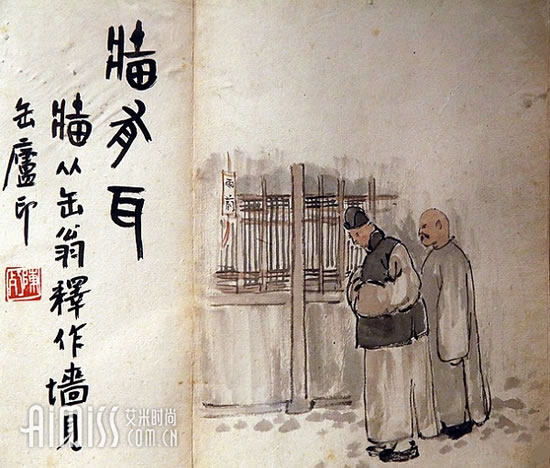 牆有耳
牆从缶翁釋作墙見
缶廬印
雨前
AiMiss 艾米时尚
.COM.CN